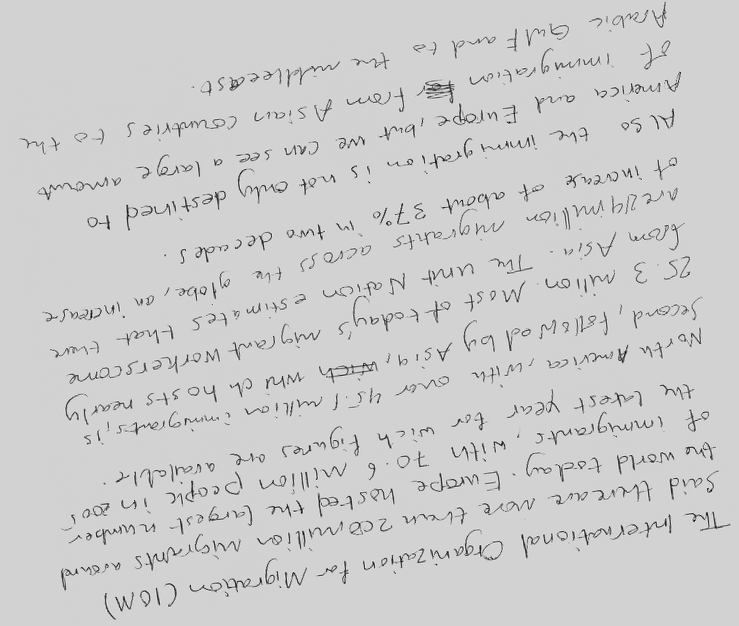 The International Organization for Migration (IOM)
Said thereare more then 200 million migrants around
the world today. Europe hosted the largest number
of immigrants, with 70.6 million people in 2005
the latest year for wich figures are available.
North America, with over 45.1 million immigrants, is
Second, followod by Asia, which hosts nearly
25.3 million. Most of today's migrant workerscome
from Asia. The unit Nation estimates that there
are214million migrants across the globe, an increase
of increase of about 37% in two decades.
Also the immigration is not only destined to
America and Europe, but we can see a large amount
of immigration from Asian countries to the
Arabic Gulf and to the middleeast.